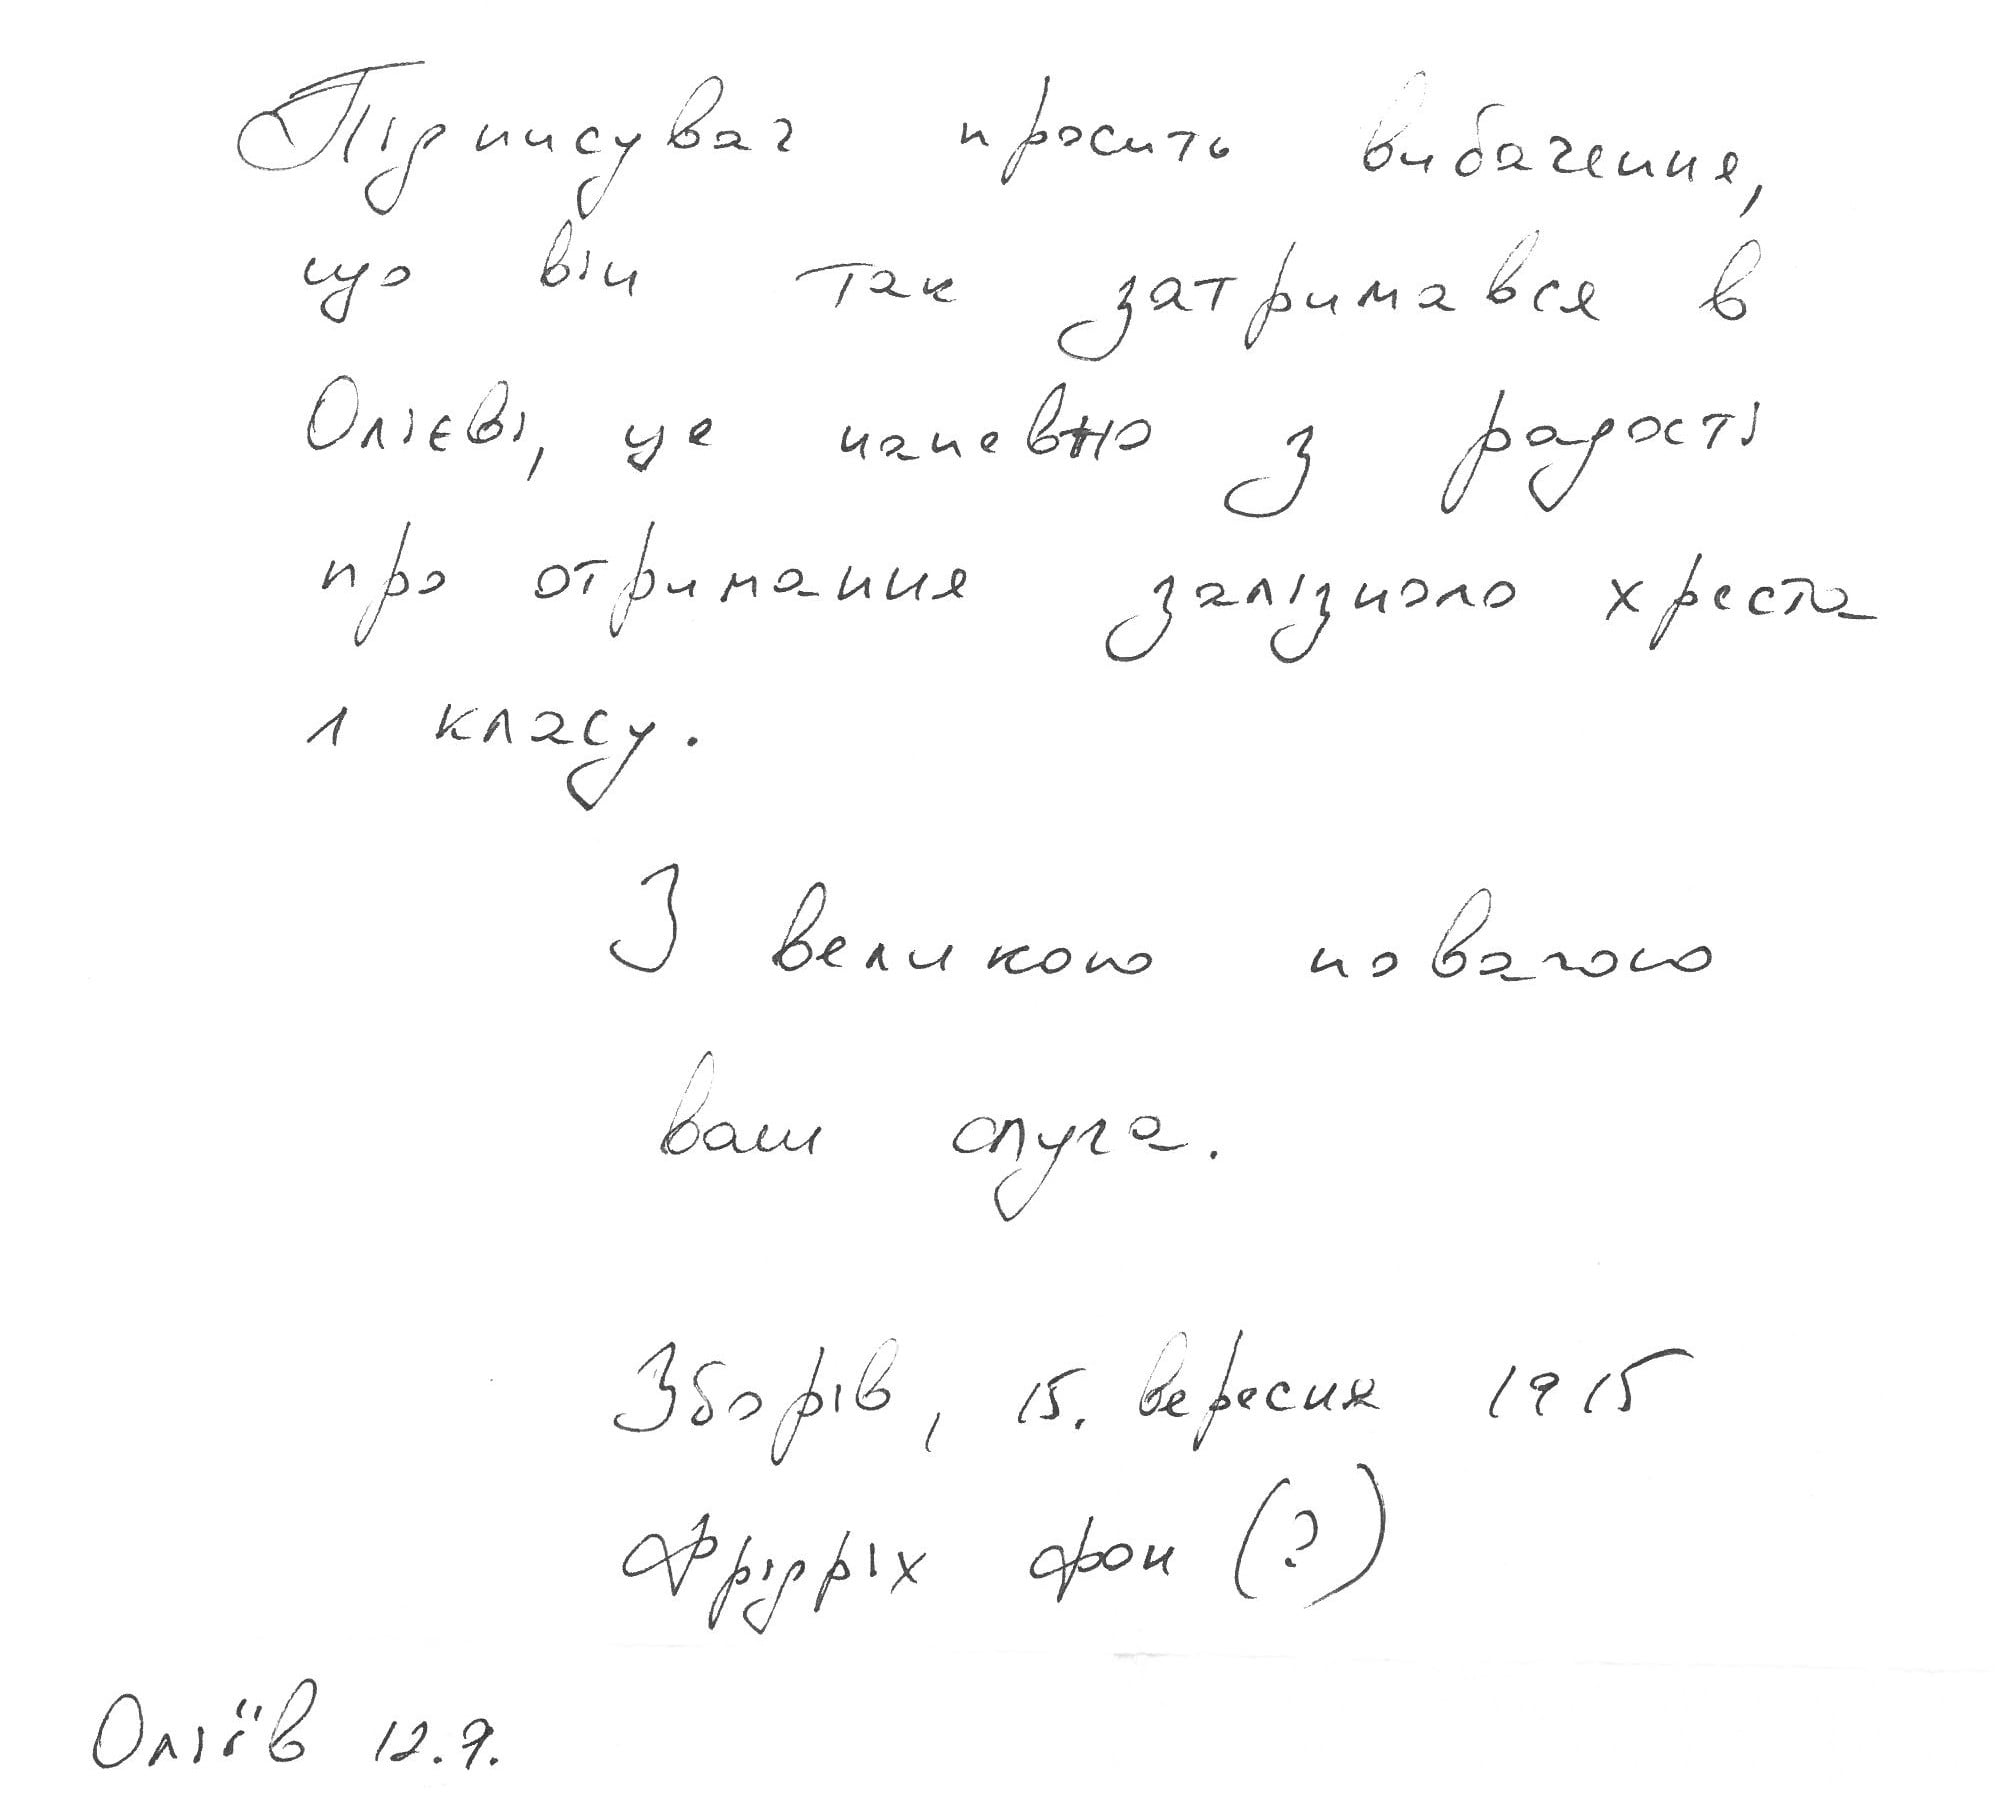 Підписувач просить вибачення,
що він так затримався в
Олієві, це напевно з радості
про отримання залізного хреста
1 класу.
З великою повагою
ваш слуга.
Зборів, 15. вересня 1915
Фрідріх фон (?)
Оліїв 12.9.